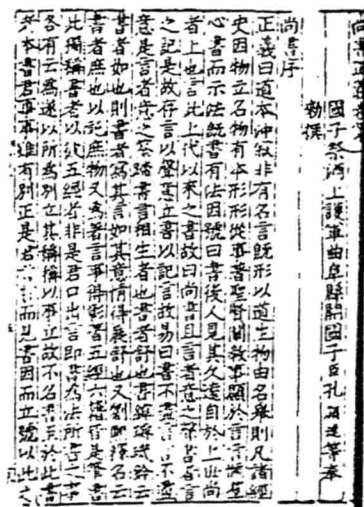 國子祭酒上護軍曲阜縣開國子臣孔穎達等奉
勅撰
尚書序
正義曰道本沖寂非有名言既形以道生物由名舉則凡諸經
史因物立名物有本形形從事著聖賢闡教事顯於言言愜羣
心書而示法既書有法因號曰書後人見其久遠自於上世尚
者上也言此上代以來之書故曰尚書且言者意之聲書者言
之記是故存言以聲意立書以記言故易曰書不盡言言不盡
意是言者意之筌蹄書言相生者也書者舒也書緯璿璣鈐云
書者如也則書者寫其言如其意情得展舒也又劉熙釋名云
書者庶也以記庶物又為著言事得彰著五經六籍皆是筆書
此獨稱書者以彼五經者非是君口出言即書為法所書之事
各有云為遂以所為別立其稱稱以事立故不名書至於此書
者本書君事事雖有別正是君言言而見書因而立號以此之